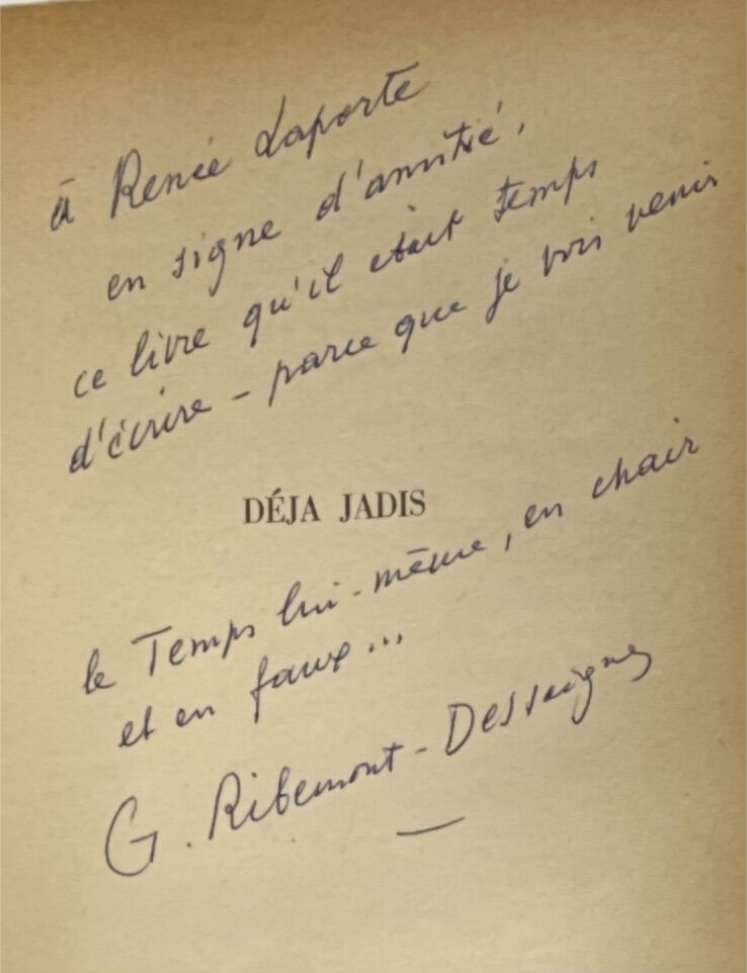 à Renée Laporte
en signe d'amitié,
ce livre qu'il était temps
d'écrire – parce que je vois venir
DÉJA JADIS
le Temps lui-même, en chair
et en faux...
G. Ribemont-Dessaignes